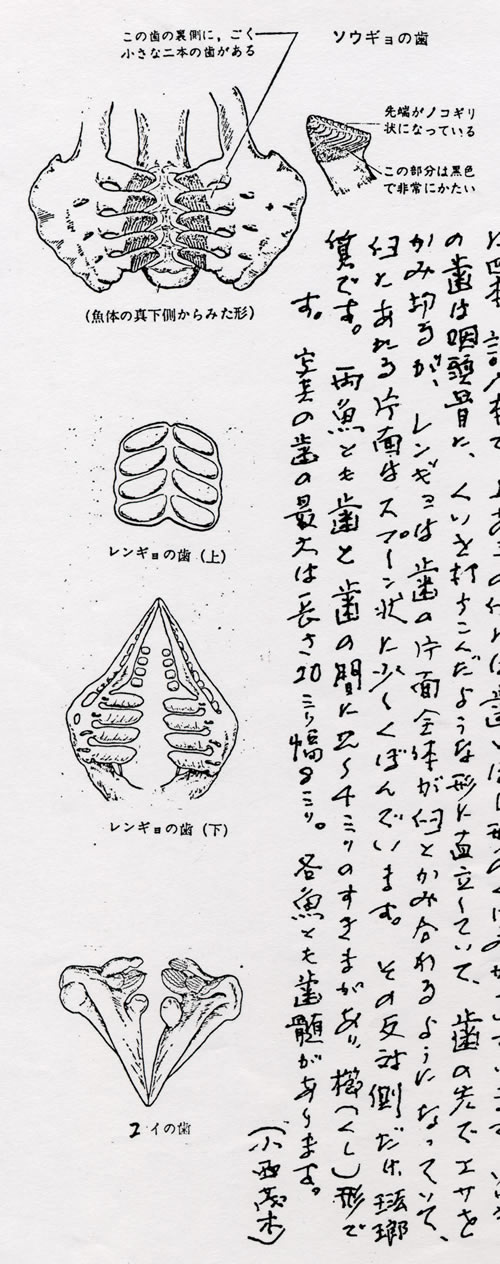 ソウギョの歯
この歯の裏側に，ごく
小さな二本の歯がある
先端がノコギリ
状になっている
この部分は黒色
で非常にかたい
(魚体の真下側からみた形)
レンギョの歯 (上)
レンギョの歯 (下)
コイの歯
の歯は咽頭骨に、くいを打ちこんだような形に直立していて、歯の先でエサを
かみ切るが、レンギョは歯の片面全体が臼とかみ合わるようになっていて、
臼にあれる片面はスプーン状に少しくぼんでいます。その反対側だけ琺瑯
質です。両魚とも歯と歯の間に2〜4ミリのすきまがあり、櫛(くし)形で
す。写真の歯の最大は長さ20ミリ幅8ミリ。各魚とも歯髄があります。
(小西茂木)